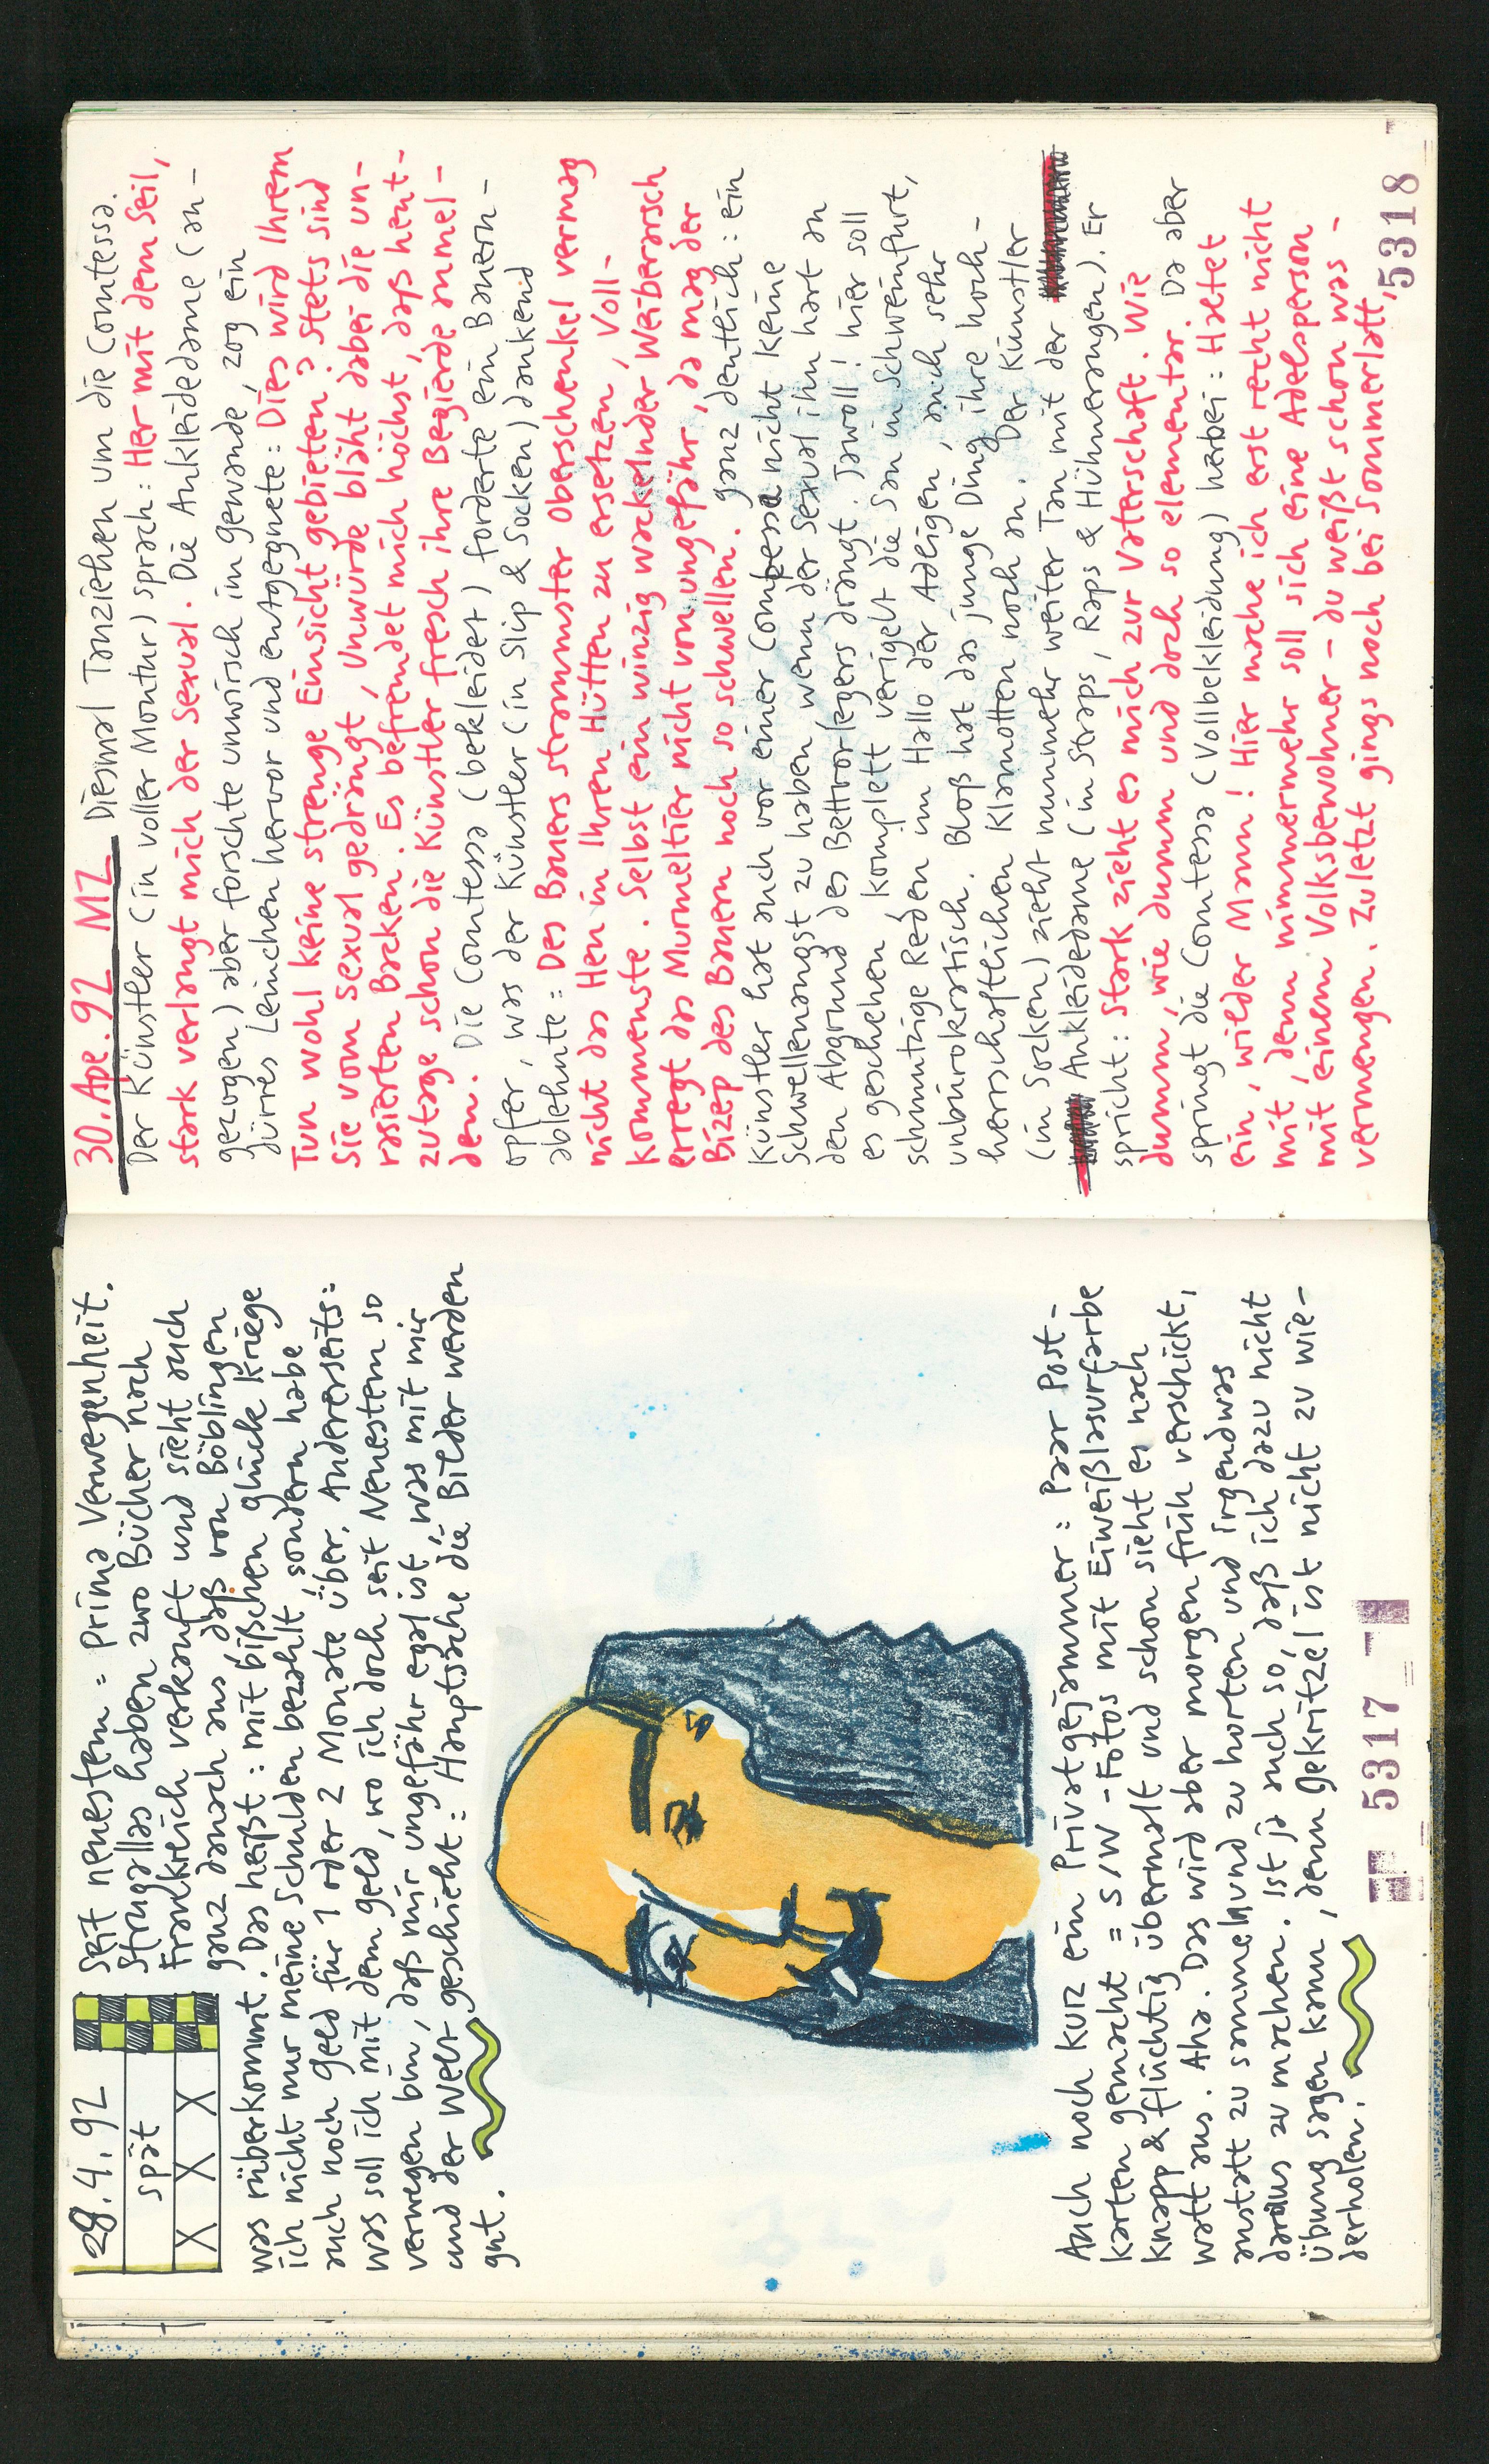 28.4.92
spät
X X X
Seit neuestem = prima Verwegenheit.
Strugallas haben zwo Bücher nach
Frankreich verkauft und sieht auch
ganz danach aus, daß von Böblingen
was rüberkommt. Das heißt: mit bißchen glück kriege
ich nicht nur meine Schulden bezahlt, sondern habe
auch noch geld für 1 oder 2 Monate über. Andererseits:
was soll ich mit dem geld, wo ich doch seit Neuestem so
verwegen bin, daß mir ungefähr egal ist, was mit mir
und der Welt geschieht: Hauptsache die Bilder werden
gut.
Auch noch kurz ein Privatgejammer: Paar Post-
karten gemacht = S/W-Fotos mit Eiweißlasurfarbe
knapp & flüchtig übermalt und schon sieht es nach
watt aus. Aha. Das wird aber morgen früh verschickt,
anstatt zu sammeln und zu horten und irgendwas
daraus zu machen. Ist ja auch so, daß ich dazu nicht
Übung sagen kann, denn gekritzel ist nicht zu wie-
derholen.
5317
30. Apr. 92 MZ Diesmal Tanziehen um die Comtessa.
Der Künstler (in voller Montur) sprach: Her mit dem Seil,
stark verlangt mich der Sexual. Die Ankleidedame (an-
gezogen) aber forschte unwirsch im gewande, zog ein
dürres Leinchen hervor und entgegnete: Dies wird Ihrem
Tun wohl keine strenge Einsicht gebieten? Stets sind
Sie vom Sexual gedrängt, Unwürde bläht dabei die un-
rasierten Backen. Es befremdet mich höchst, daß heut-
zutage schon die Künstler fresch ihre Begierde anmel-
den. Die Comtessa (bekleidet) forderte ein Bauern-
opfer, was der Künstler (in Slip & Socken) dankend
ablehnte: Des Bauers strammster Oberschenkel vermag
nicht das Heu in Ihren Hütten zu ersetzen, Voll-
kommenste. Selbst ein winzig wackelnder Weiberarsch
erregt das Murmeltier nicht von ungefähr, da mag der
Bizep des Bauern noch so schwellen. ganz deutlich: ein
Künstler hat auch vor einer Comtessa nicht keine
Schwellenangst zu haben wenn der Sexual ihn hart an
den Abgrund des Bettvorlegers drängt. Jawoll! hier soll
es geschehen komplett verigelt die Sau in Schweinfurt,
schmutzige Reden im Hallo der Adligen, auch sehr
unbürokratisch. Bloß hat das junge Ding ihre hoch-
herrschaftlichen Klamotten noch an. Der Künstler
(in Socken) zieht nunmehr weiter Tau mit der
Ankleidedame (in Straps, Raps & Hühneraugen). Er
spricht: Stark zieht es mich zur Vaterschaft. Wie
dumm, wie dumm und doch so elementar. Da aber
springt die Comtessa (Vollbekleidung) herbei: Haltet
ein, wilder Mann! Hier mache ich erst recht nicht
mit, denn nimmermehr soll sich eine Adelsperson
mit einem Volksbewohner – du weißt schon was –
vermengen. Zuletzt gings noch bei Sommerlatt,
5318